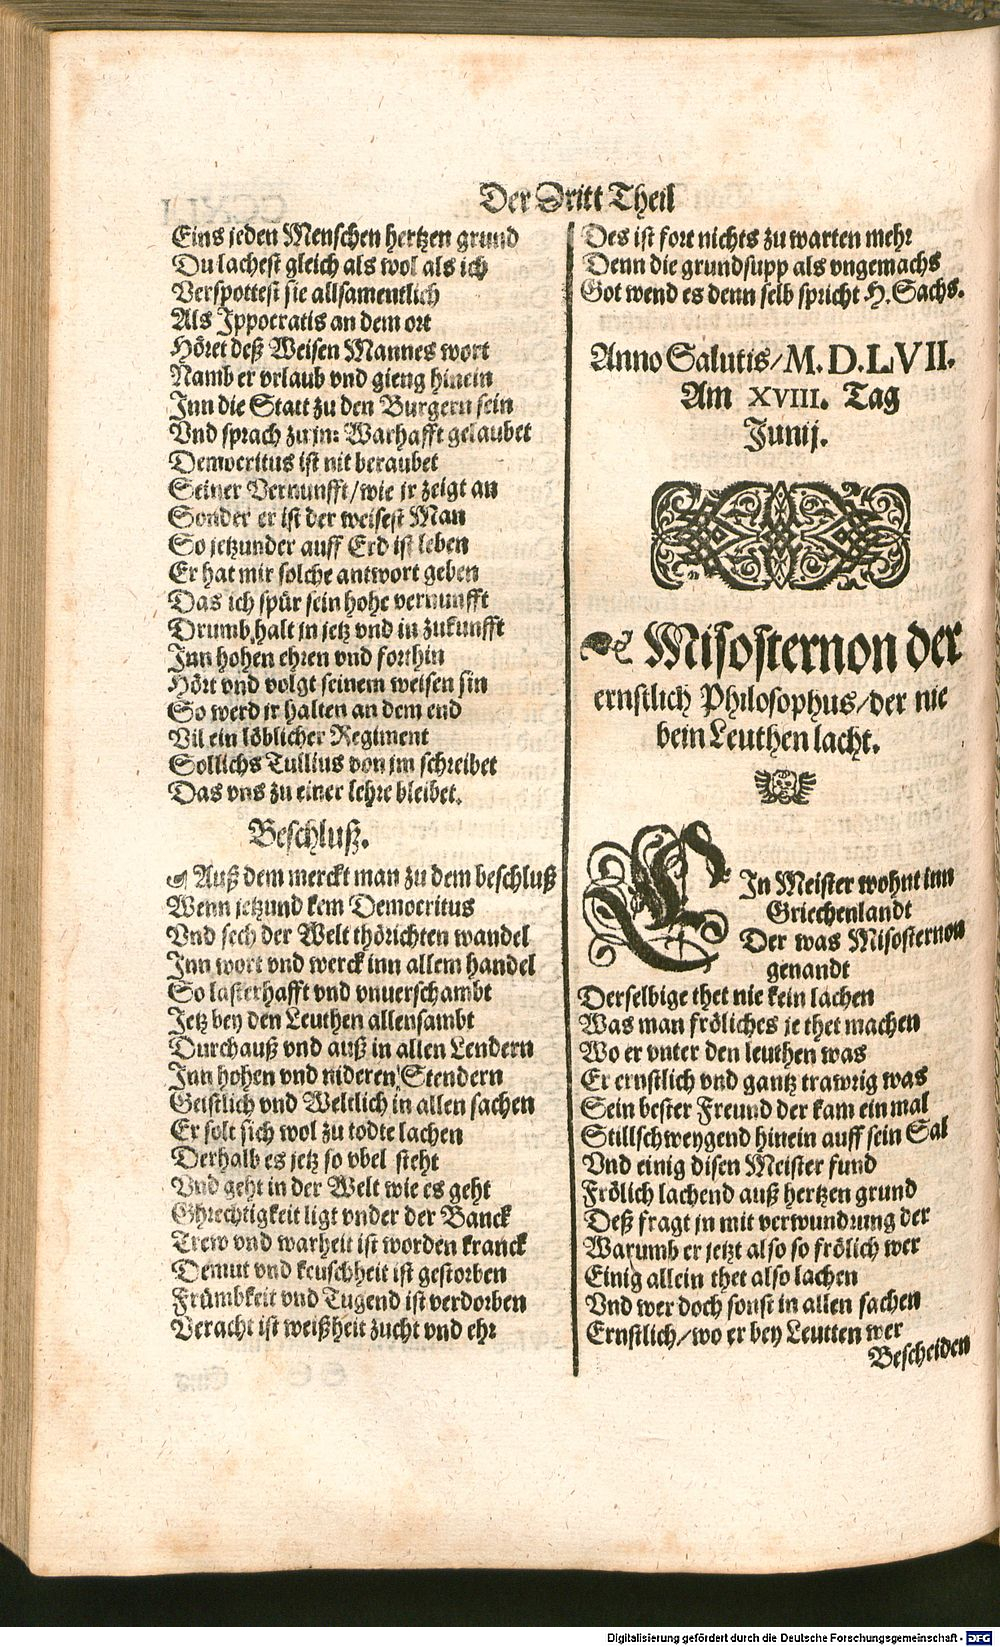 Der Dritt Theil
Eins jeden Menschen hertzen grund
Du lachest gleich als wol als ich
Verspottest sie allsamentlich
Als Ippocratis an dem ort
Höret deß Weisen Mannes wort
Namb er vrlaub vnd gieng hinein
Inn die Statt zu den Burgern sein
Vnd sprach zu jn: Warhafft gelaubet
Democritus ist nit beraubet
Seiner Vernunfft/wie jr zeigt an
Sonder er ist der weisest Man
So jetzunder auff Erd ist leben
Er hat mir solche antwort geben
Das ich spür sein hohe vernunfft
Drumb halt jn jetz vnd in zukunfft
Inn hohen ehren vnd forthin
Hört vnd volgt seinem weisen sin
So werd jr halten an dem end
Vil ein löblicher Regiment
Sollichs Tullius von jm schreibet
Das vns zu einer lehre bleibet.
Beschluß.
Auß dem merckt man zu dem beschluß
Wenn jetzund kem Democritus
Vnd sech der Welt thörichten wandel
Inn wort vnd werck inn allem handel
So lasterhafft vnd vnuerschambt
Jetz bey den Leuthen allensambt
Durchauß vnd auß in allen Lendern
Inn hohen vnd nideren Stendern
Geistlich vnd Weltlich in allen sachen
Er solt sich wol zu todte lachen
Derhalb es jetz so vbel steht
Vnd geht in der Welt wie es geht
Ghrechtigkeit ligt vnder der Banck
Trew vnd warheit ist worden kranck
Demut vnd keuschheit ist gestorben
Frümbkeit vnd Tugend ist verdorben
Veracht ist weißheit zucht vnd ehr
Des ist fort nichts zu warten mehr
Denn die grundsupp als vngemachs
Got wend es denn selb spricht H. Sachs.
Anno Salutis/M. D. LVII.
Am XVIII. Tag
Junij.
Misosternon der
ernstlich Philosophus/der nie
bein Leuthen lacht.
EIn Meister wohnt inn
Griechenlandt
Der was Misosternon
genandt
Derselbige thet nie kein lachen
Was man fröliches je thet machen
Wo er vnter den leuthen was
Er ernstlich vnd gantz trawrig was
Sein bester Freund der kam ein mal
Stillschweygend hinein auff sein Sal
Vnd einig disen Meister fund
Frölich lachend auß hertzen grund
Deß fragt jn mit verwundrung der
Warumb er jetzt also so frölich wer
Einig allein thet also lachen
Vnd wer doch sonst in allen sachen
Ernstlich/wo er bey Leutten wer
Bescheiden
Digitalisierung gefördert durch die Deutsche Forschungsgemeinschaft - DFG